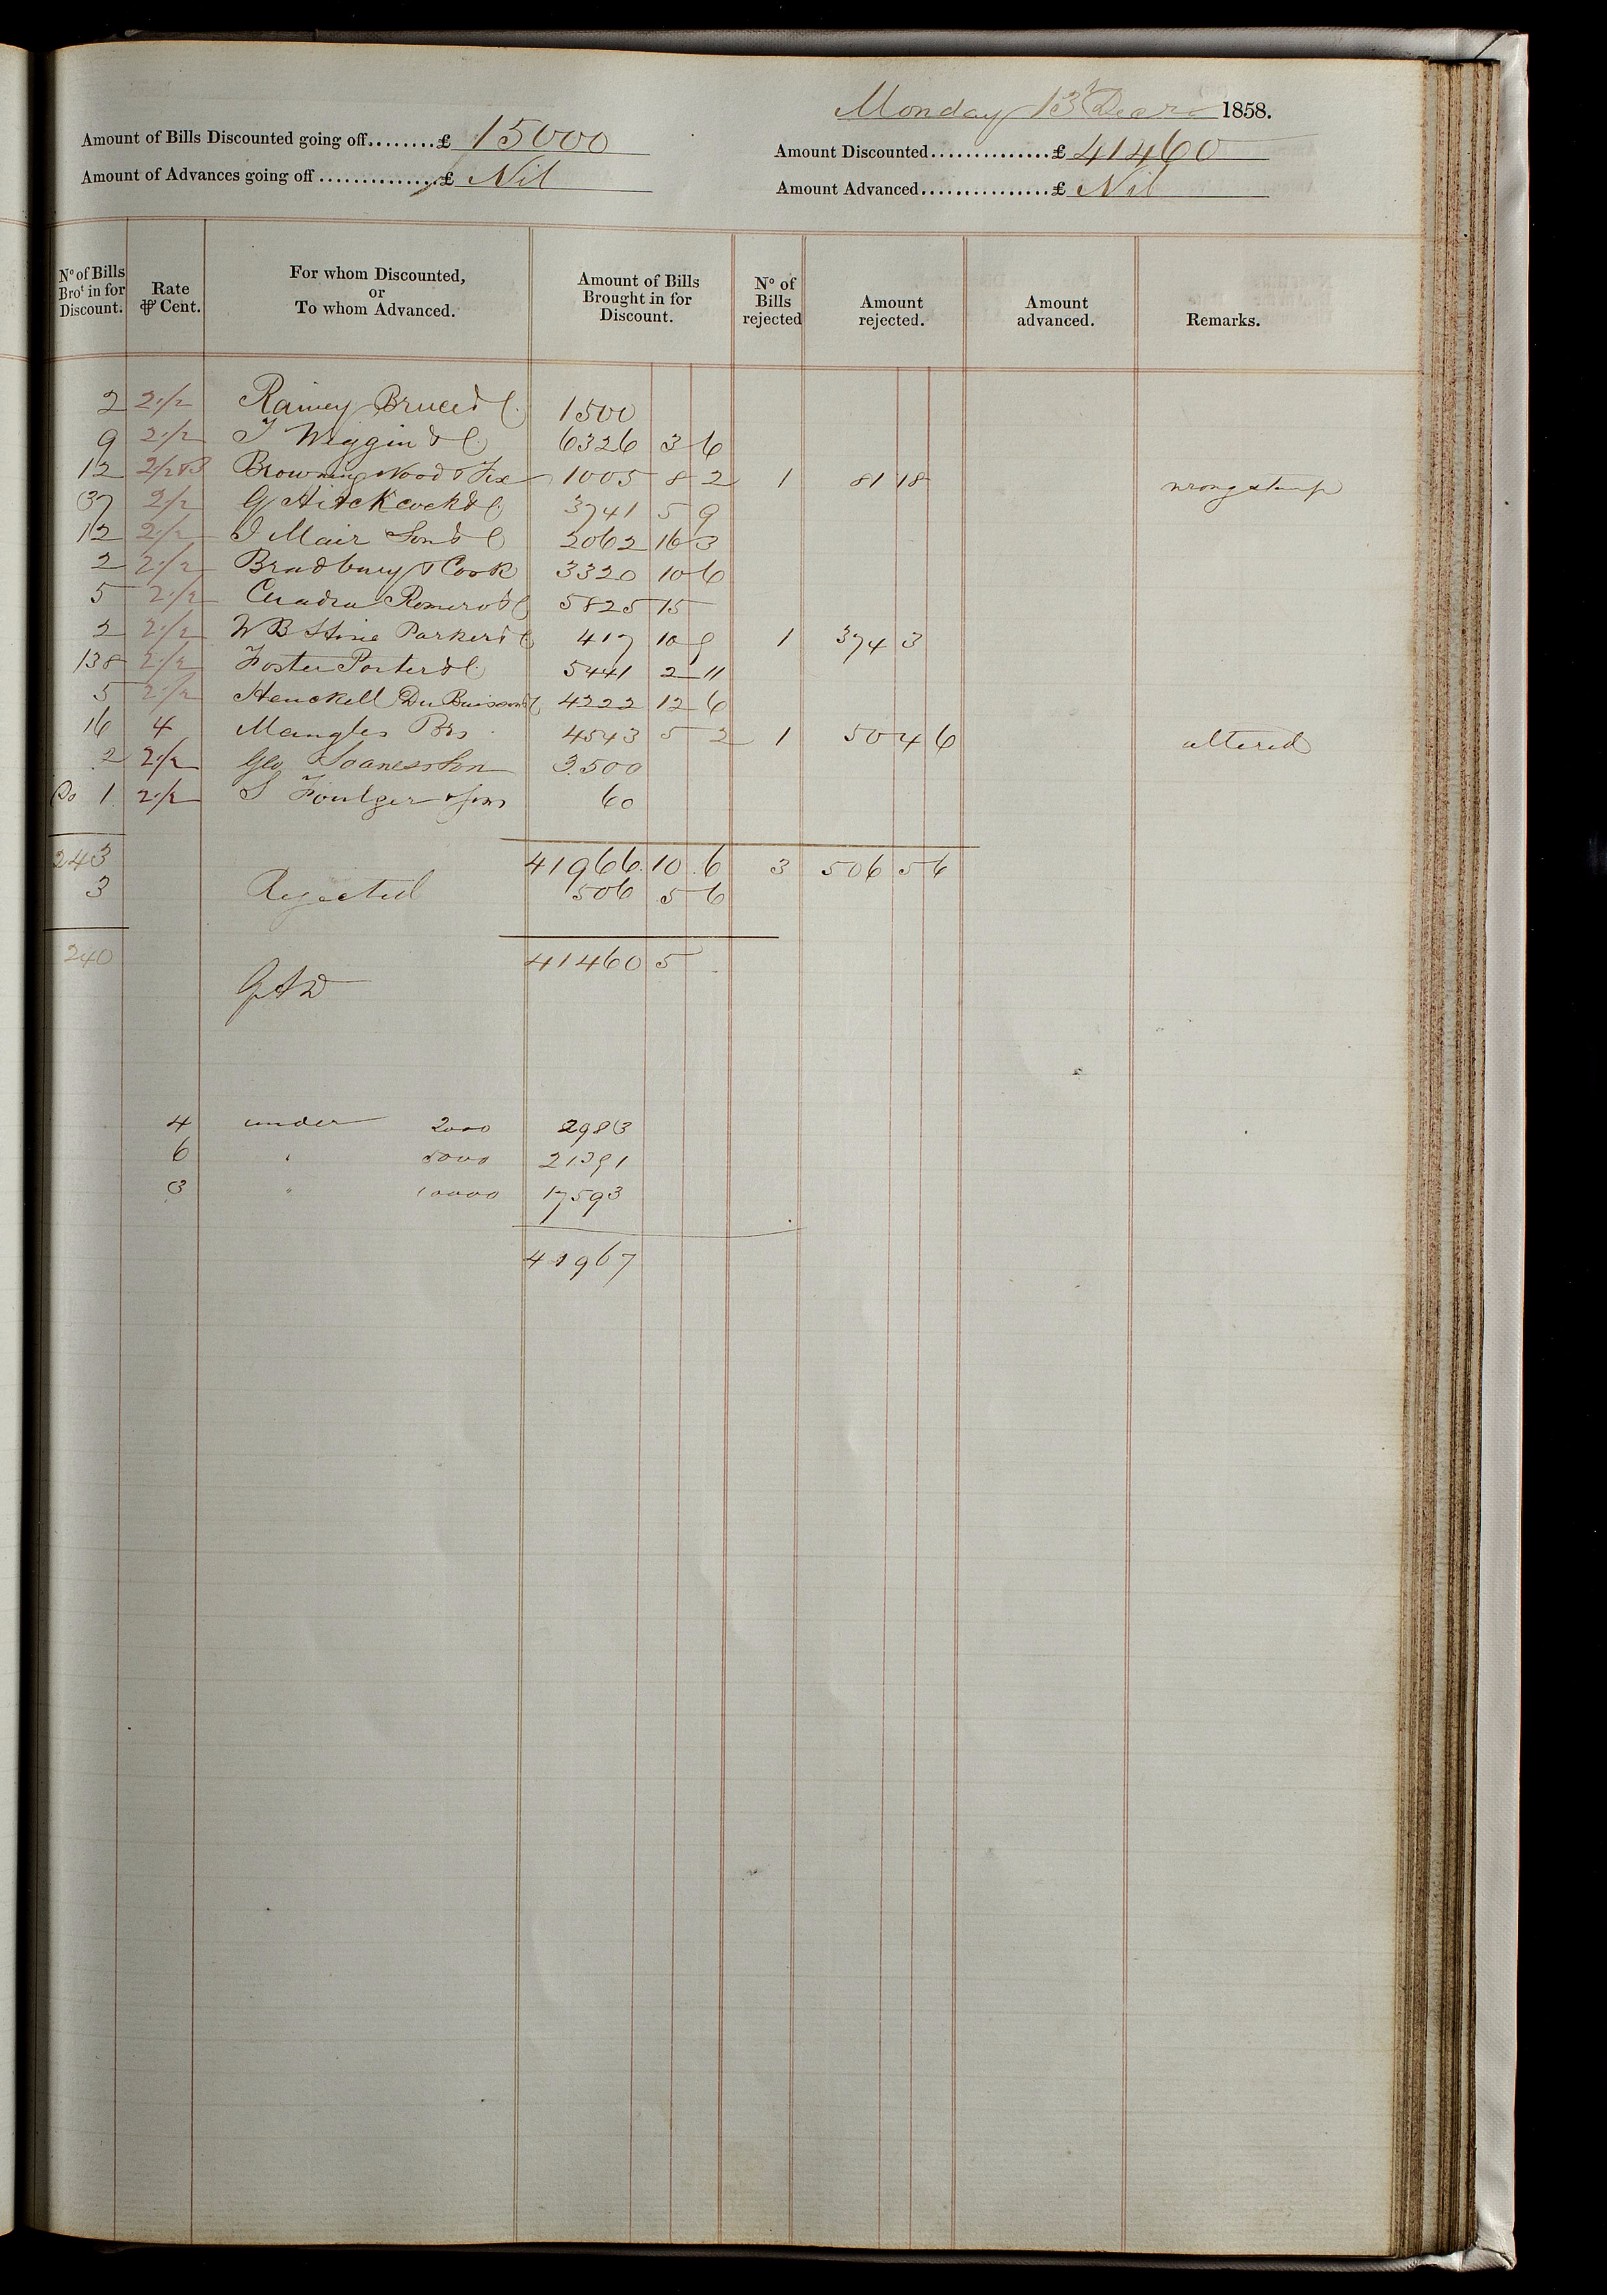 Monday 13th Decr 1858.
Amount of Bills Discounted going off........£ 15000
Amount Discounted..............£ 41460
Amount of Advances going off...............£ Nil
Amount Advanced................£ Nil
No of Bills Brot in for Discount. Rate ⅌ Cent. For whom Discounted, or To whom Advanced. Amount of Bills Brought in for Discount. No of Bills rejected Amount rejected. Amount advanced. Remarks.
2 2 1/2 Rainey Bruce & C 1500
9 2 1/2 T Wiggin & C 6326 3 6
12 2 1/2 & 3 Browning Wood & Fox 1005 8 2 1 81 18 wrong stamp
37 2 1/2 G Hitchcock & C 3741 5 9
12 2 1/2 I Mair Son & C 2062 16 3
2 2 1/2 Bradbury & Cook 3320 10 6
5 2 1/2 Cuadra Romero & C 5825 15
2 2 1/2 W B Parker & C 417 10 9 1 374 3
138 2 1/2 Foster Porter & C 5441 2 11
5 2 1/2 Henckell Du Buisson & C 4222 12 6
16 4 Mangles Bros 4543 5 2 1 50 4 6 altered
2 2 1/2 Geo Soanes & Son 3500
Do 1 2 1/2 S Foulger & Sons 60
243 41966 10 6 3 506 5 6
3 Rejected 506 5 6
240 41460 5
4 under 2000 2983
6 " 5000 21391
3 " 10000 17593
41967